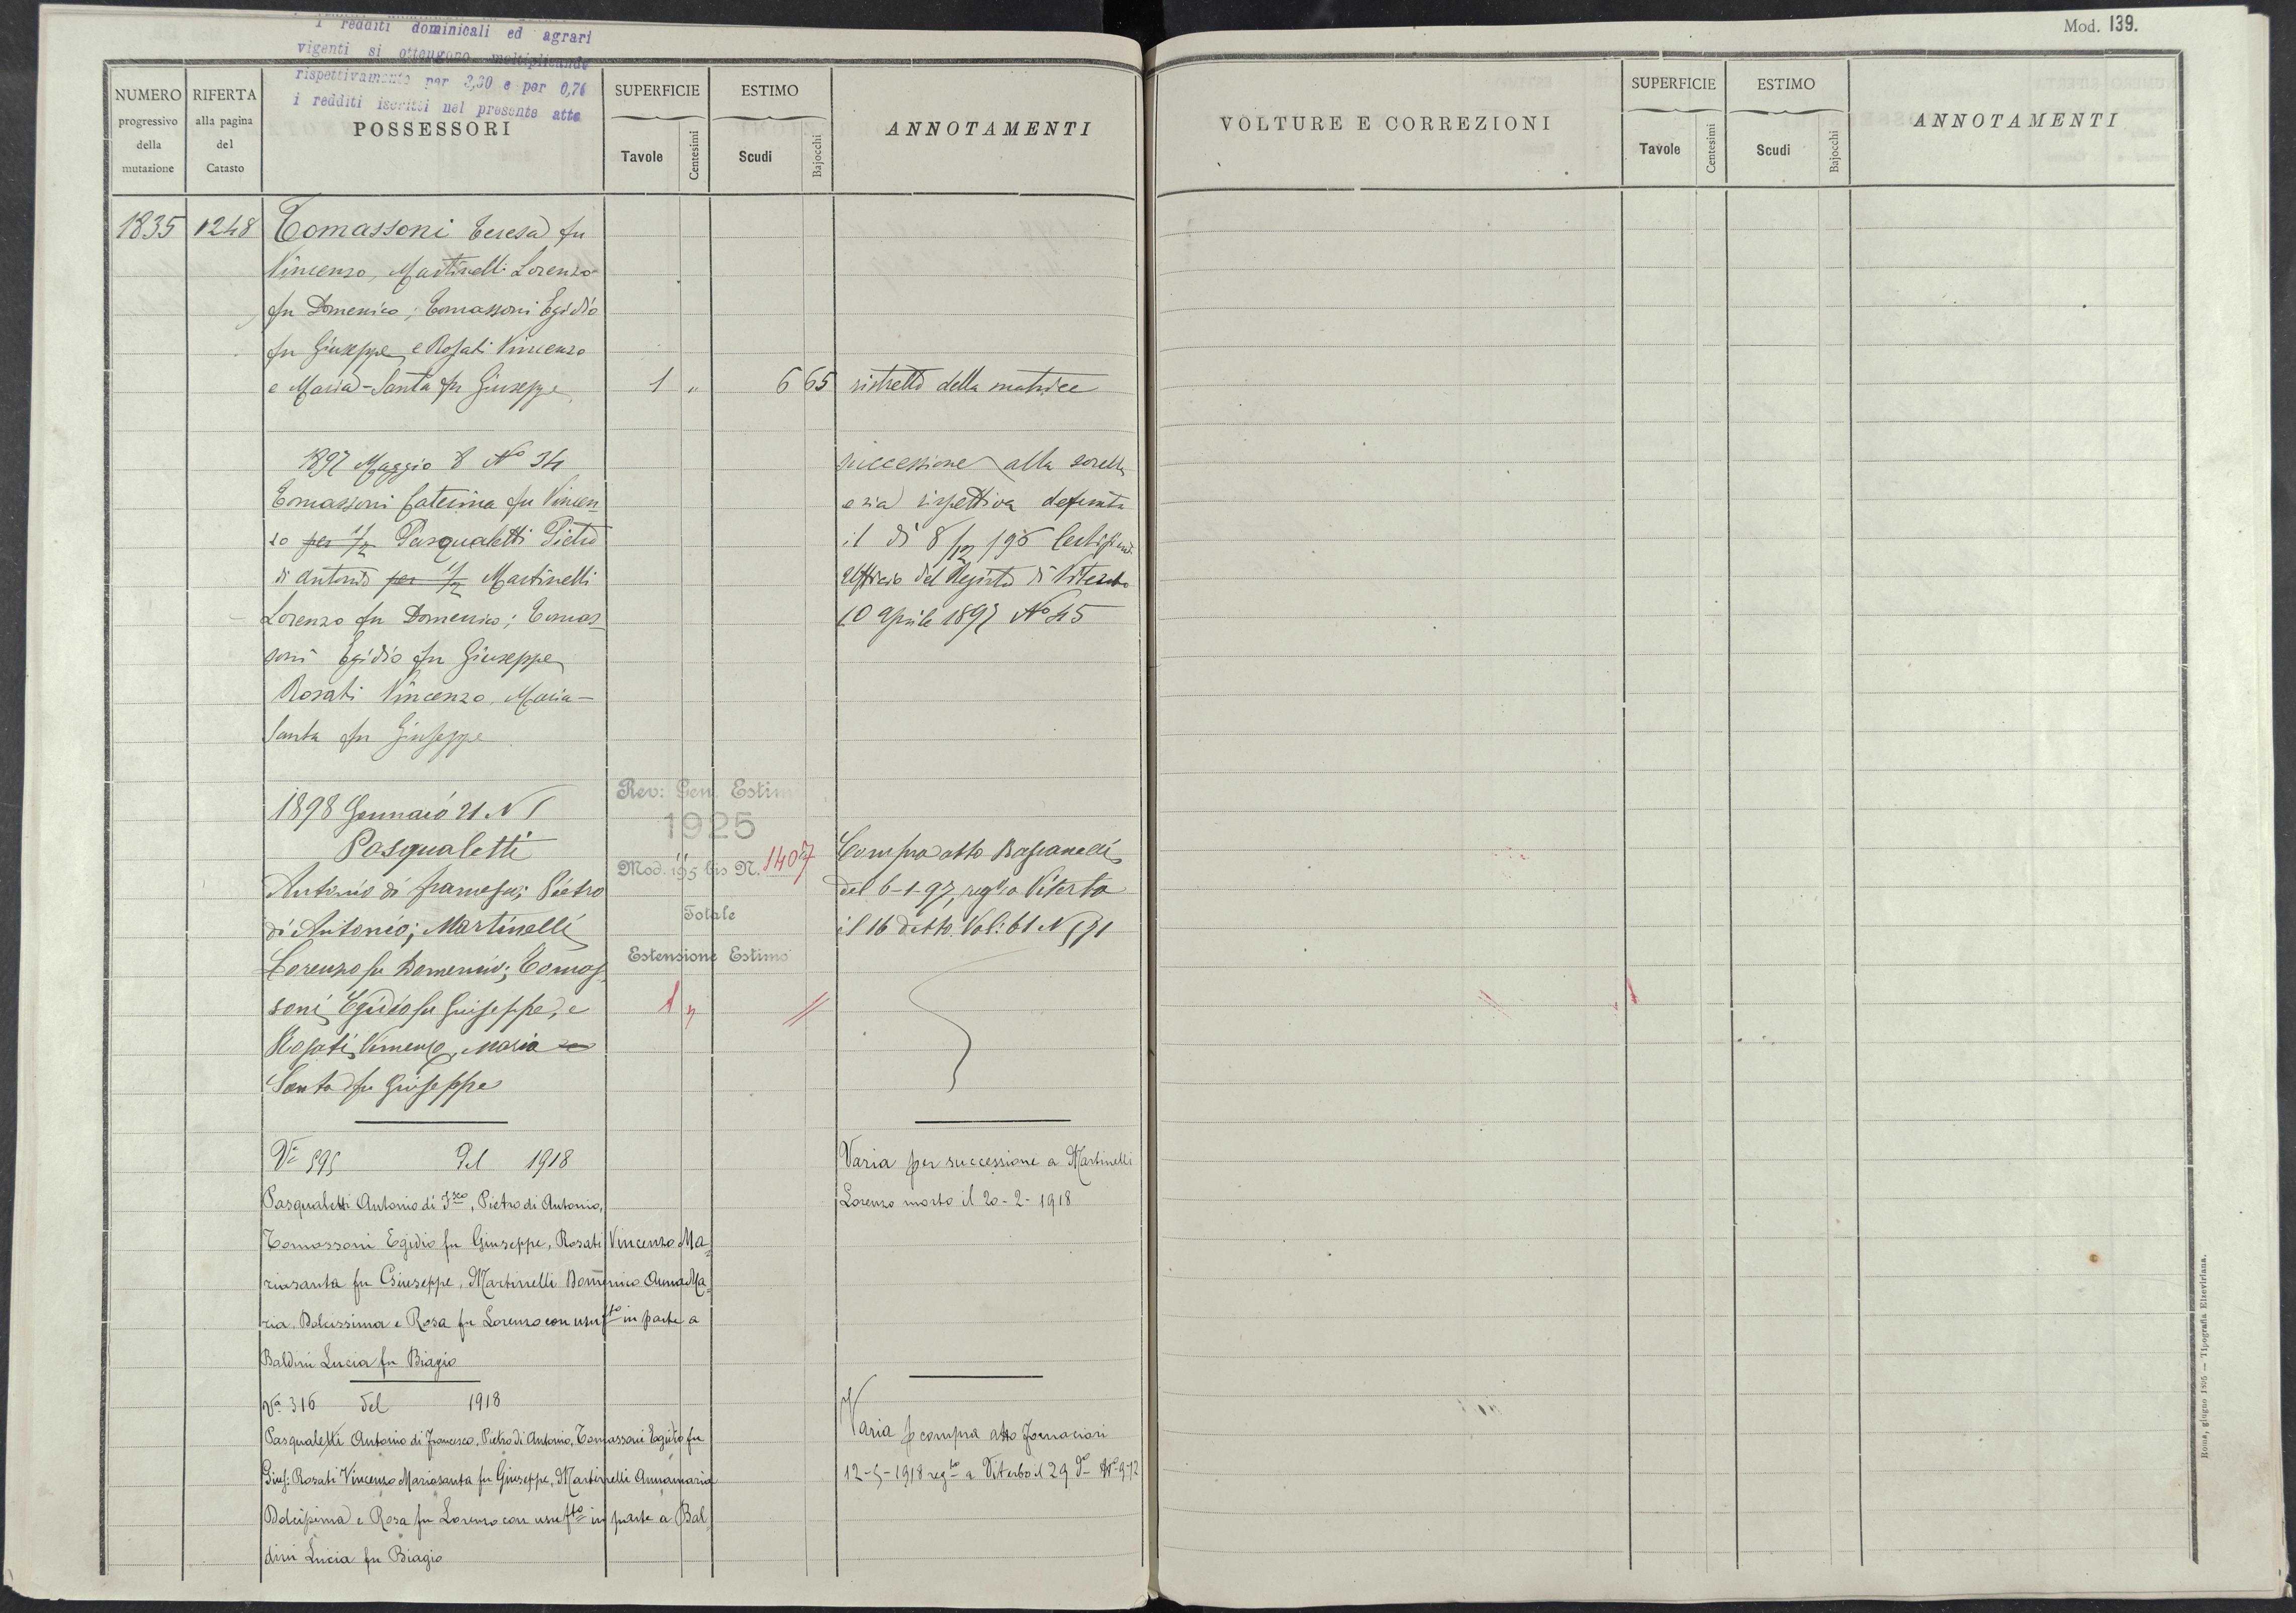 Mod. 139.
I redditi dominicali ed agrari
vigenti si ottengono moltiplicando
rispettivamente per 3,30 e per 0,76
i redditi iscritti nel presente atto
NUMERO progressivo della mutazione
RIFERTA alla pagina del Catasto
POSSESSORI
SUPERFICIE
Tavole
Centesimi
ESTIMO
Scudi
Bajocchi
ANNOTAMENTI
VOLTURE E CORREZIONI
SUPERFICIE
Tavole
Centesimi
ESTIMO
Scudi
Bajocchi
ANNOTAMENTI
1835 1248 Tomassoni Teresa fu
Vincenzo, Martinelli Lorenzo
fu Domenico; Tomassoni Egidio
fu Giuseppe, e Rosati Vincenzo
e Maria-Santa fu Giuseppe 1 " 6 65 ristretto della matrice
1897 Maggio 8 No 34
Tomassoni Caterina fu Vincen-
zo per 1/2 Pasqualetti Pietro
di Antonio per 1/2 Martinelli
Lorenzo fu Domenico; Tomas-
soni Egidio fu Giuseppe
Rosati Vincenzo, Maria-
Santa fu Giuseppe
successione alla sorella
e zia rispettiva defunta
il dì 8/12/96
Ufficio del Registro di Viterbo
10 Aprile 1897 No 45
1898 Gennaio 21 N 1
Pasqualetti
Antonio di Francesco; Pietro
di Antonio; Martinelli
Lorenzo fu Domenico; Tomas-
soni Egidio fu Giuseppe, e
Rosati Vincenzo, Maria
Santa fu Giuseppe
Rev: Gen. Estimi
1925
Mod. 15 bis N. 1407
Totale
Estensione Estimo
1 " //
Compra atto
del 6-1-97, reg° a Viterbo
il 16 detto Vol: 61 N
Va 595 Del 1918
Pasqualetti Antonio di Fsco, Pietro di Antonio,
Tomassoni Egidio fu Giuseppe, Rosati Vincenzo Ma-
riasanta fu Giuseppe, Martinelli Domenico Anna Ma-
ria, Dolcissima e Rosa fu Lorenzo con usuftto in parte a
Baldini Lucia fu Biagio
Varia per successione a Martinelli
Lorenzo morto il 20-2-1918
Va 316 del 1918
Pasqualetti Antonio di Francesco, Pietro di Antonio, Tomassoni Egidio fu
Gius: Rosati Vincenzo Mariasanta fu Giuseppe, Martinelli Annamaria
Dolcissima e Rosa fu Lorenzo con usuftto in parte a Bal-
dini Lucia fu Biagio
Varia p compra atto Fornaciari
12-5-1918 regto a Viterbo il 29 do
Roma, giugno 1895 — Tipografia Elzeviriana.